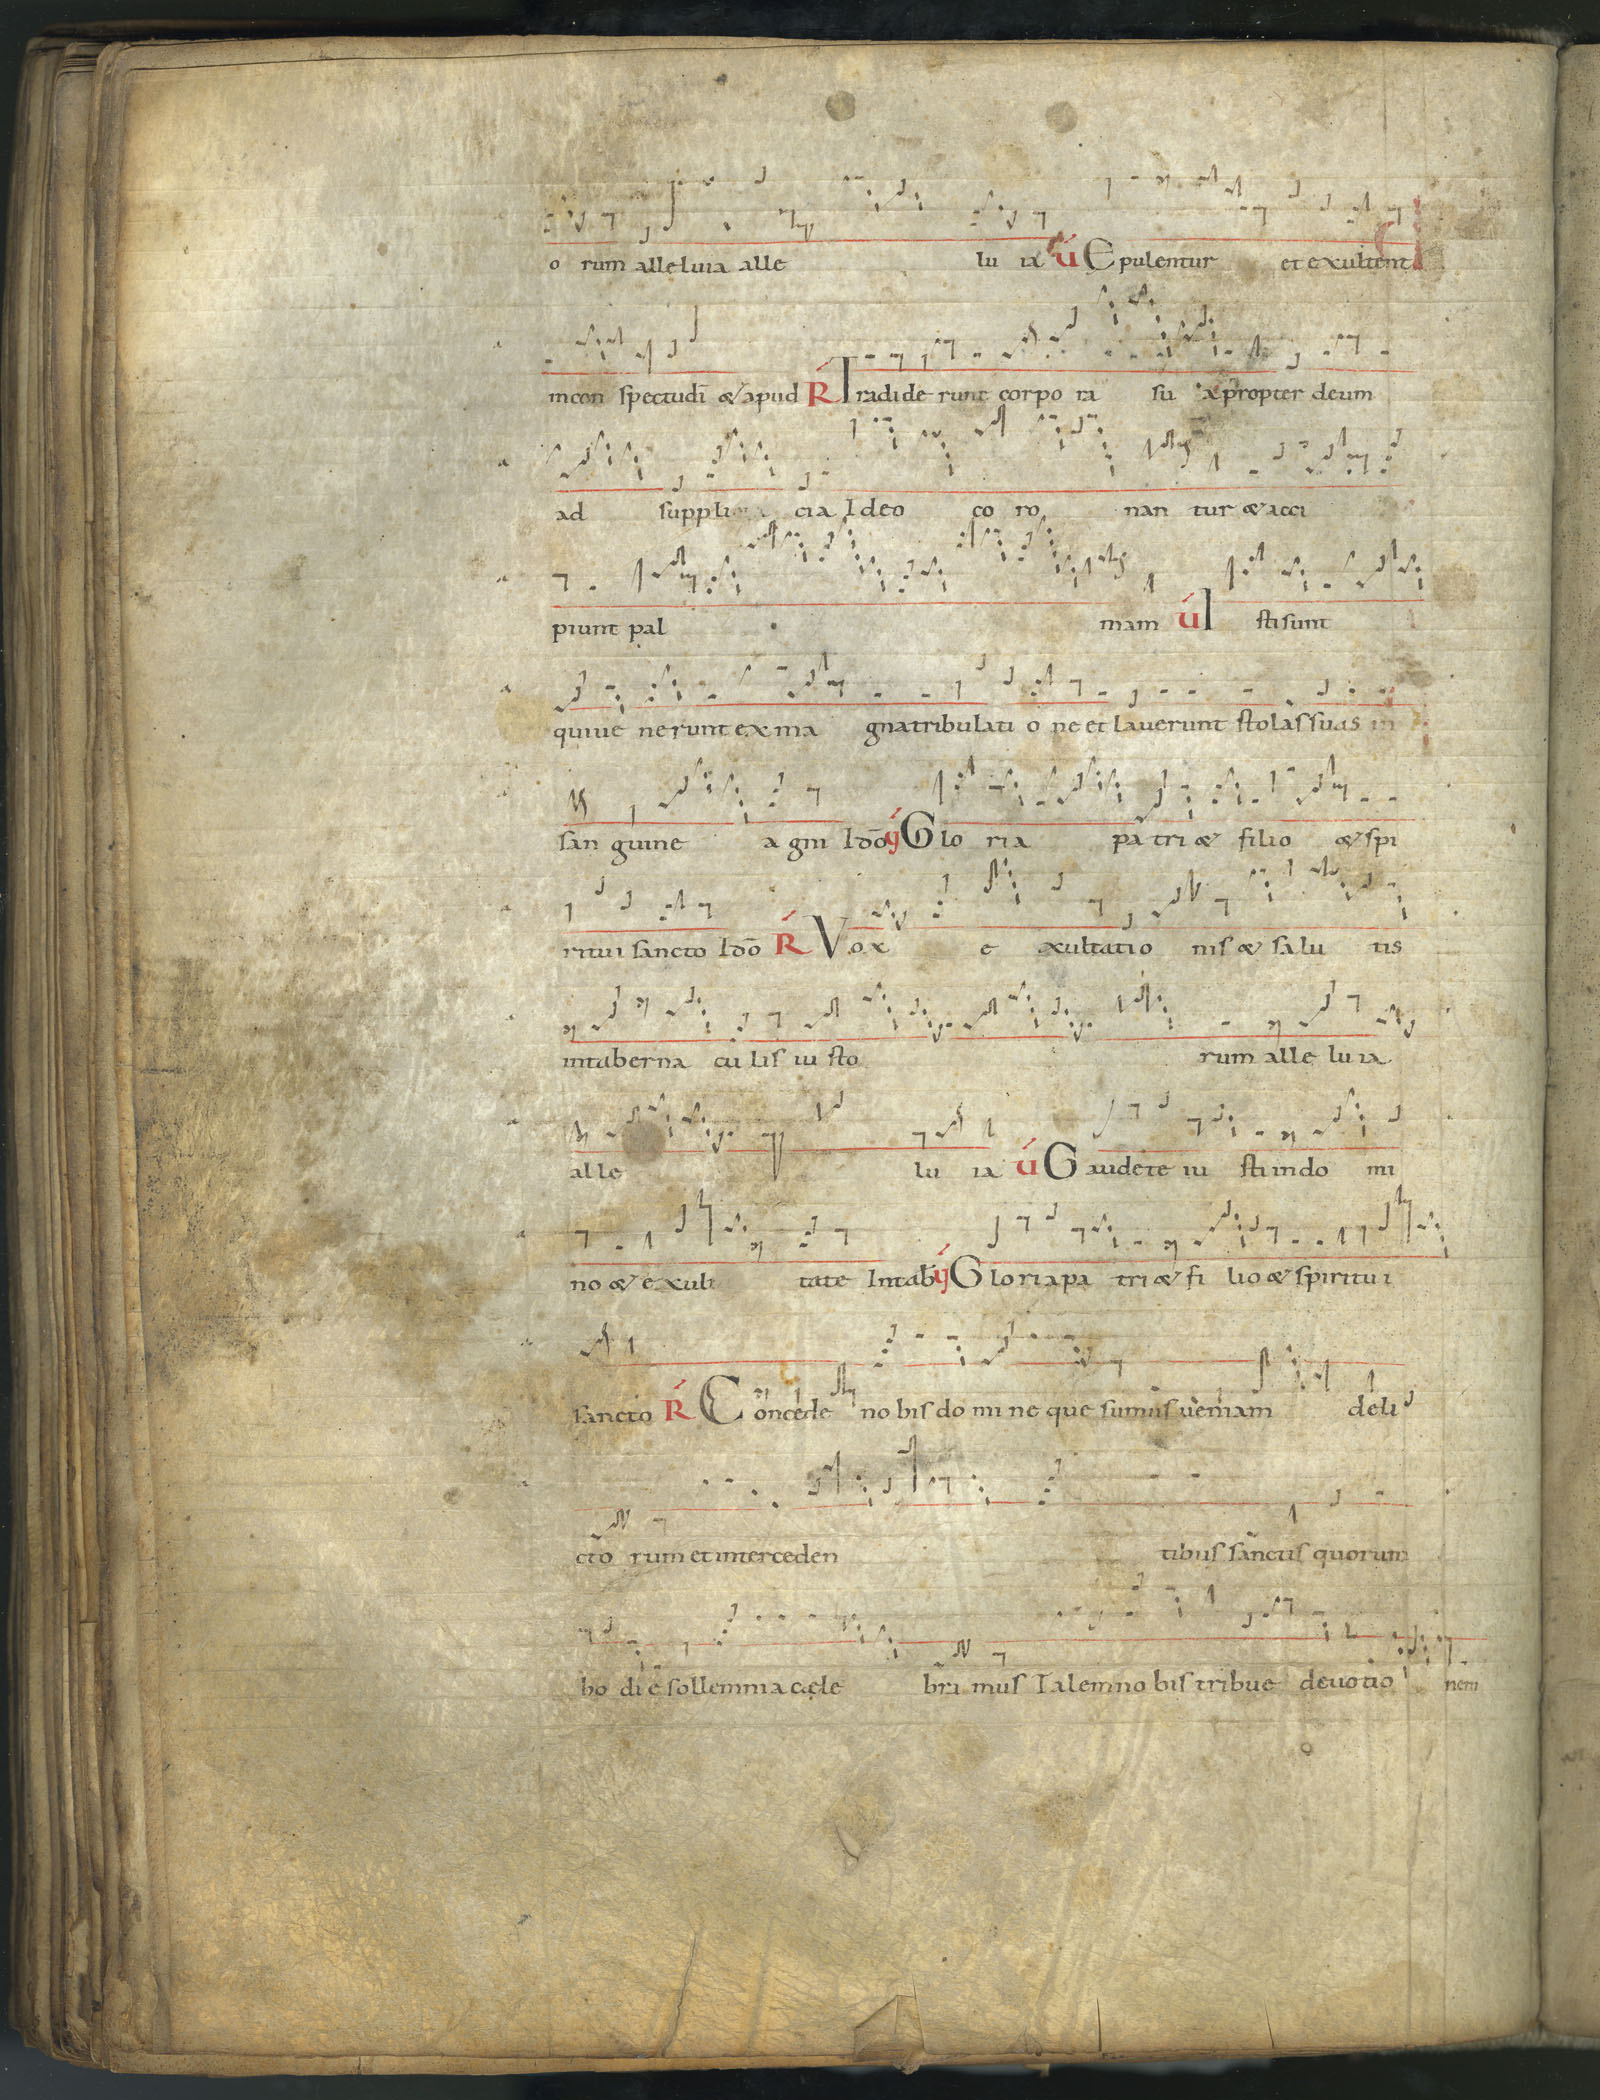 o rum alleluia alle lu ia V Epulentur et exultent
incon spectu dī & apud R Tradide runt corpo ra su a propter deum
ad suppli cia Ideo co ro nan tur & acci
piunt pal mam V I sti sunt
qui ue nerunt ex ma gna tribulati o ne et lauerunt stolas suas in
san guine a gni Idō V Glo ria pa tri & filio & spi
ritui sancto Idō R Vox e xultatio nis & salu tis
in taberna cu lis iu sto rum alle lu ia
alle lu ia V Gaudete iu sti in do mi
no & exult tate In tab V Gloria pa tri & fi lio & spiritu i
sancto R Concede no bis do mi ne que sumus ueniam deli
cto rum et interceden tibus sanctis quorum
ho di e sollemnia cęle bri mus Talem no bis tribue deuotio nem